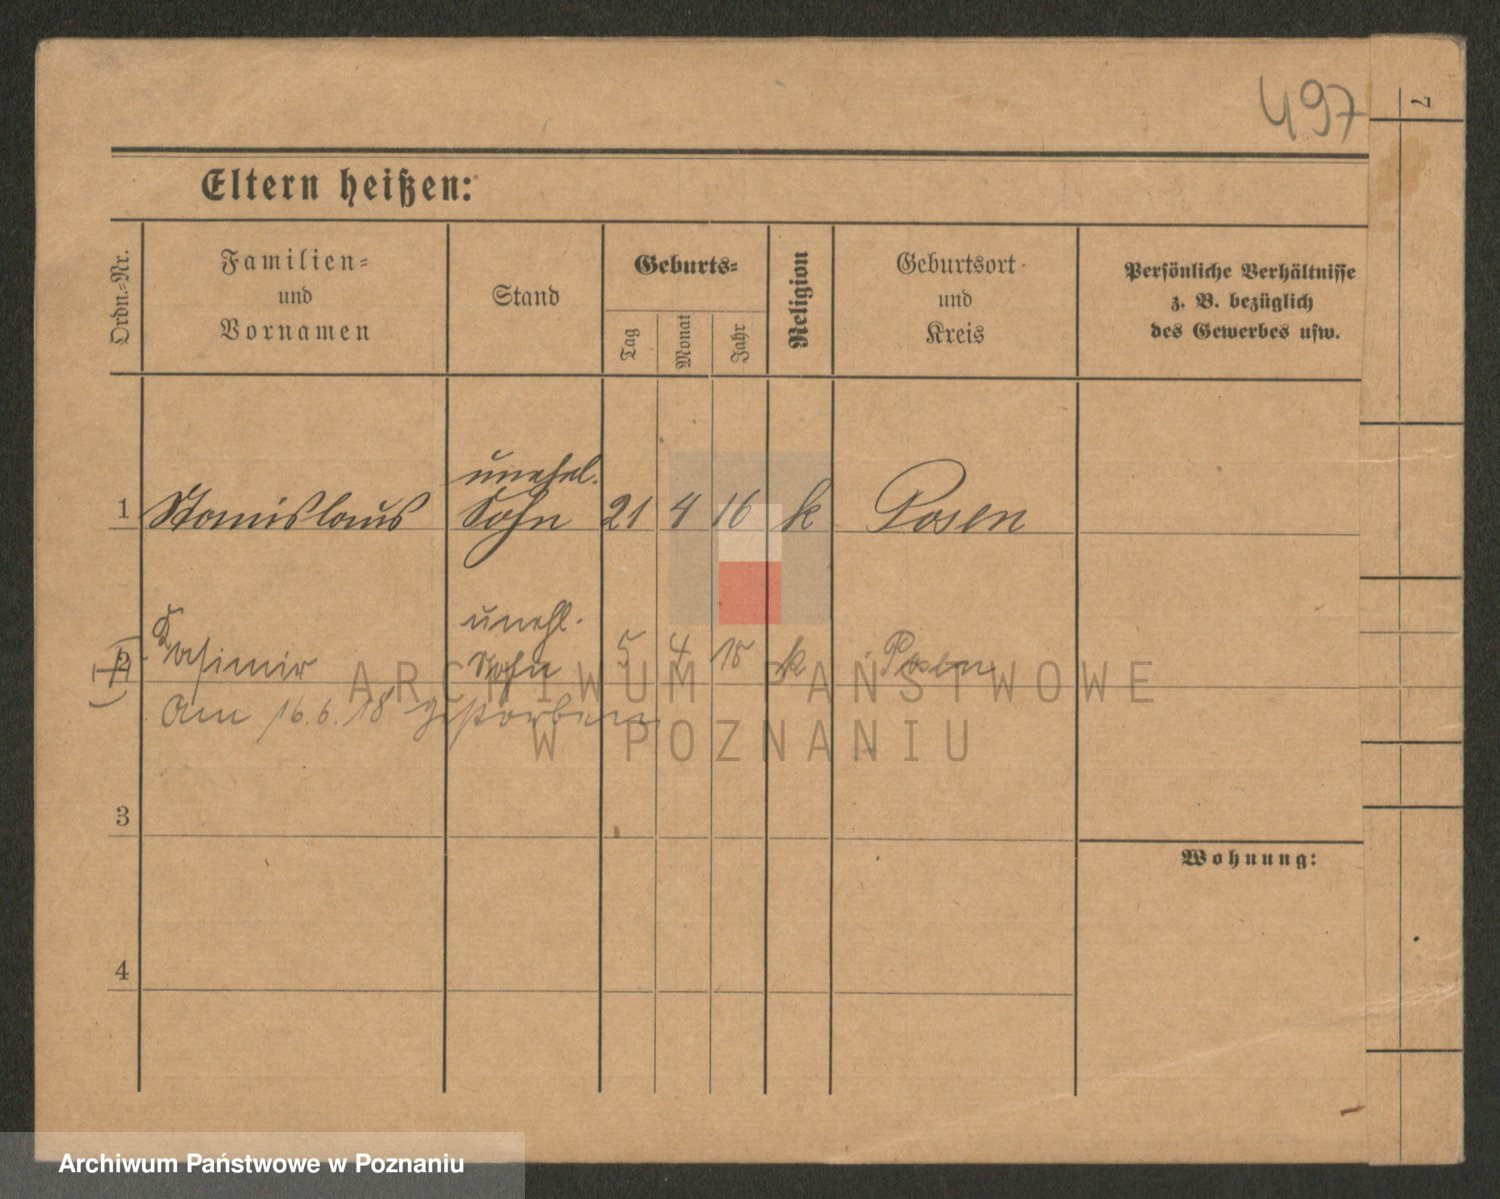 497
7
Eltern heißen:
Ordn.-Nr.
Familien-
und
Vornamen
Stand
Geburts-
Tag
Monat
Jahr
Religion
Geburtsort
und
Kreis
Persönliche Verhältnisse
z. B. bezüglich
des Gewerbes usw.
unehel.
1 Stanislaus Sohn 21 4 16 k Posen
unehl.
2 Kasimir Sohn 5 4 18 k Posen
Am 16.6.18 gestorben
3
Wohnung:
4
ARCHIWUM PAŃSTWOWE
W POZNANIU
Archiwum Państwowe w Poznaniu